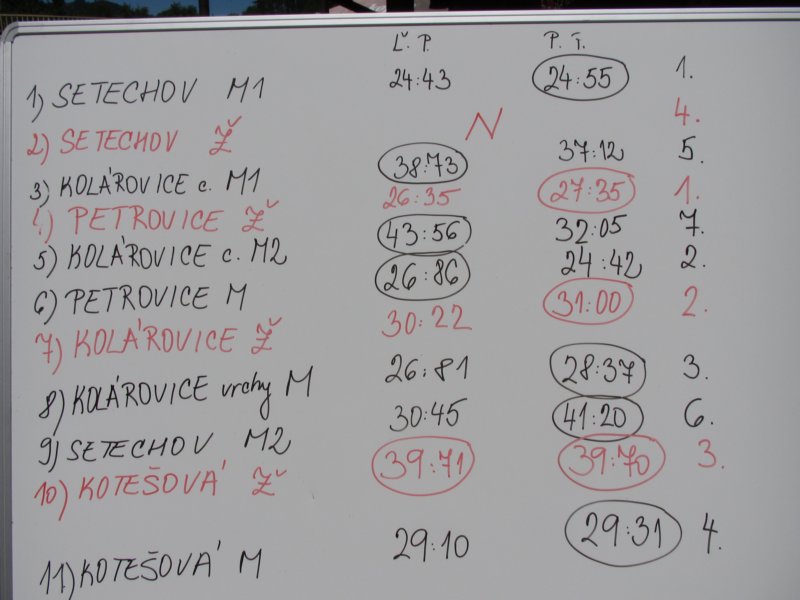 Ľ. P. P. T.
1) SETECHOV M1 24:43 24:55 1.
2) SETECHOV Ž N 4.
3) KOLÁROVICE c. M1 38:73 37:12 5.
4) PETROVICE Ž 26:35 27:35 1.
5) KOLÁROVICE c. M2 43:56 32:05 7.
6) PETROVICE M 26:86 24:42 2.
7) KOLÁROVICE Ž 30:22 31:00 2.
8) KOLÁROVICE vrchy M 26:81 28:37 3.
9) SETECHOV M2 30:45 41:20 6.
10) KOTEŠOVÁ Ž 39:71 39:70 3.
11) KOTEŠOVÁ M 29:10 29:31 4.